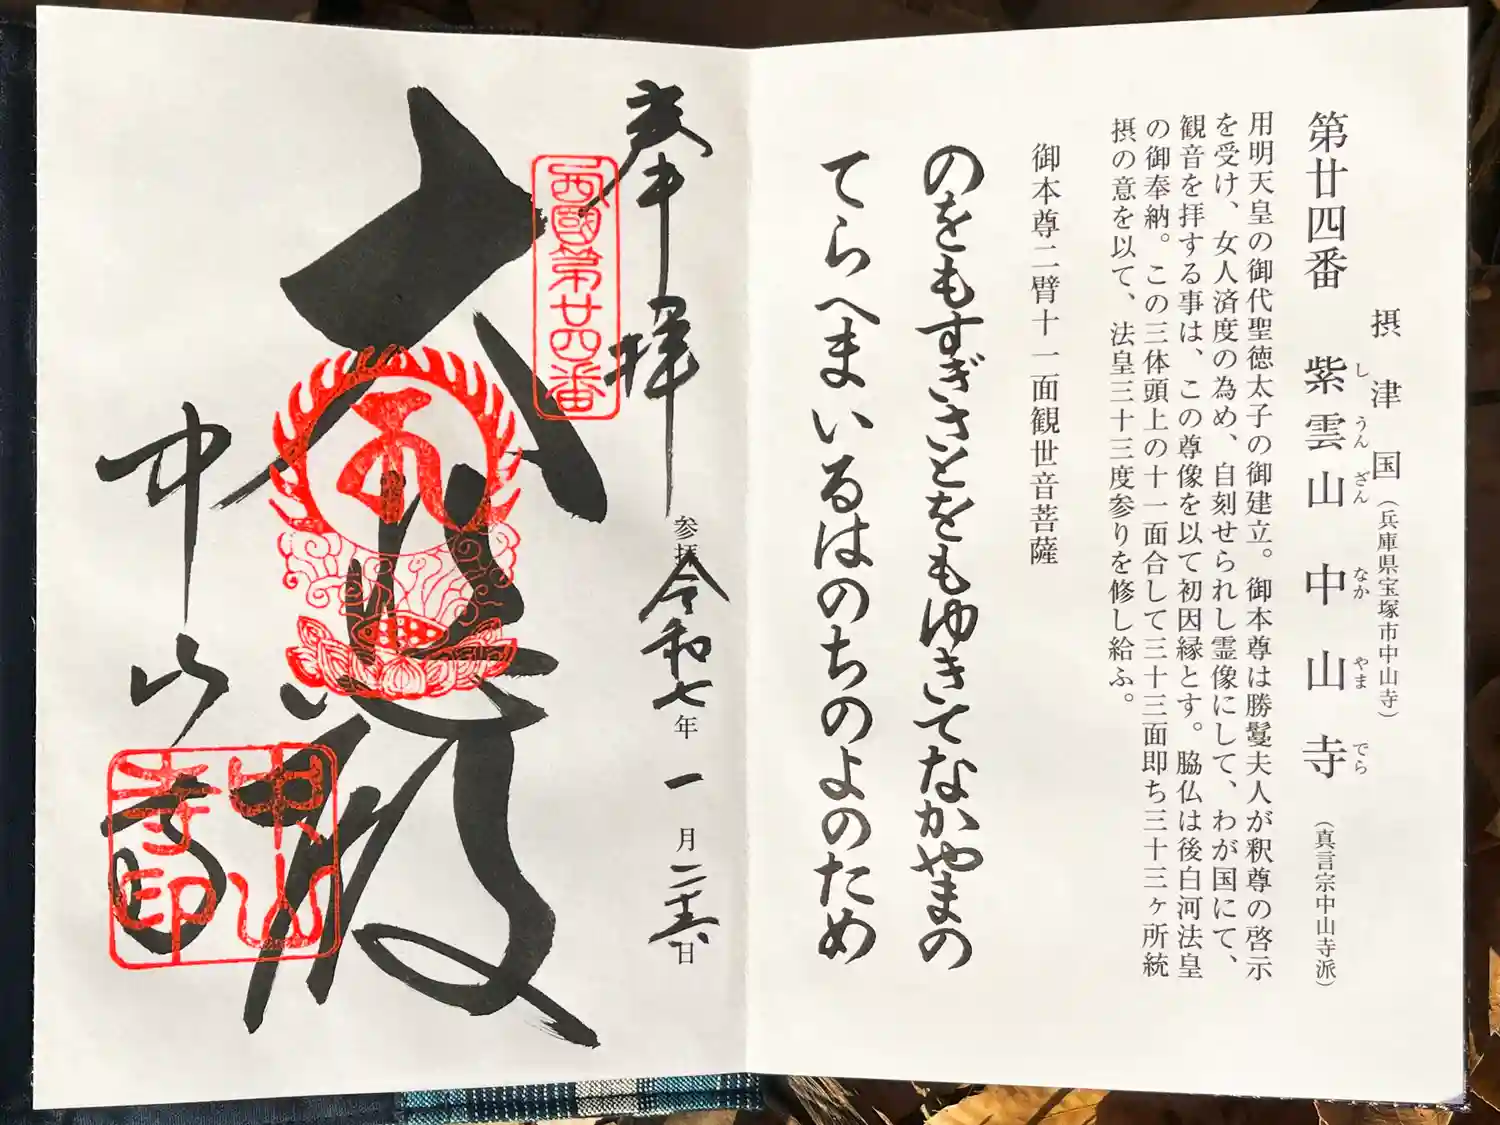 摂津国（兵庫県宝塚市中山寺）
第廿四番 紫雲山 中山寺（真言宗中山寺派）
し うん ざん なか やま でら
用明天皇の御代聖徳太子の御建立。御本尊は勝鬘夫人が釈尊の啓示
を受け、女人済度の為め、自刻せられし霊像にして、わが国にて、
観音を拝する事は、この尊像を以て初因縁とす。脇仏は後白河法皇
の御奉納。この三体頭上の十一面合して三十三面即ち三十三ヶ所統
摂の意を以て、法皇三十三度参りを修し給ふ。
御本尊二臂十一面観世音菩薩
のをもすぎさとをもゆきてなかやまの
てらへまいるはのちのよのため
奉拝
参拝令和七年一月二十五日
西國第廿四番
大悲殿
中山寺
中山寺印